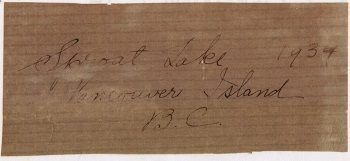 Sproat Lake 1934
Vancouver Island
B.C.